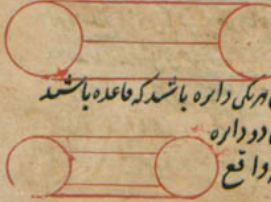 هریکی دایره باشد که قاعده باشد
دو دایره
واقع